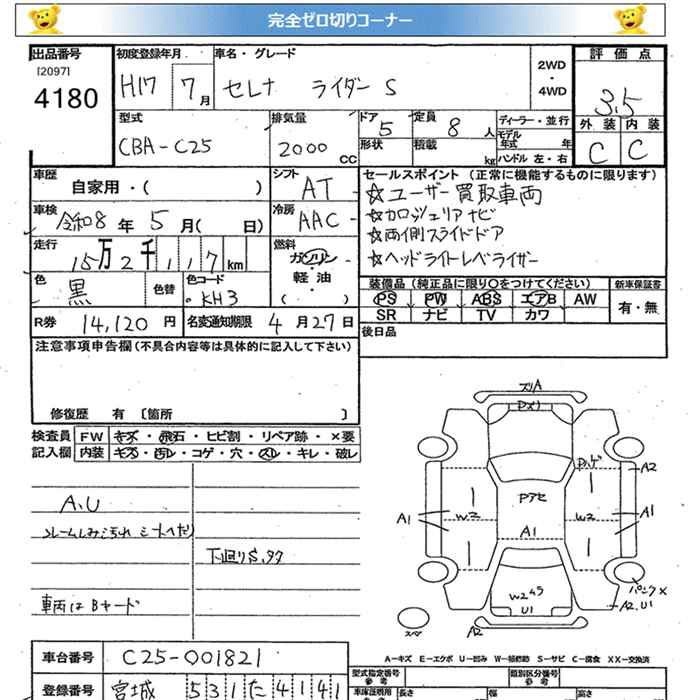 完全ゼロ切りコーナー
出品番号 初度登録年月 車名・グレード 2WD・4WD 評価点
[2097]
4180 H17 7月 セレナ ライダーS 3.5
型式 排気量 ドア 定員 ディーラー・並行 外装 内装
CBA-C25 2000 CC 5 8人 モデル年式 年 C C
形状 積載 kg ハンドル 左・右
車歴 自家用・( ) シフト AT セールスポイント (正常に機能するものに限ります)
☆ユーザー買取車両
車検 令和8年 5月( 日) 冷房 AAC
☆カロッツェリアナビ
☆両側スライドドア
走行 15万2千117km 燃料 ガソリン・軽油( )
☆ヘッドライトレベライザー
色 黒 色替 色コード KH3
装備品 (純正品に限り〇をつけてください) 新車保証書
PS PW ABS エアB AW 有・無
SR ナビ TV カワ
R券 14,120円 名変通知期限 4月27日
後日品
注意事項申告欄 (不具合内容等は具体的に記入して下さい)
修復歴 有 [箇所 ]
検査員 FW キズ・飛石・ヒビ割・リペア跡・×要
記入欄 内装 キズ・汚レ・コゲ・穴・スレ・キレ・破レ
A.U
シートへたり
下廻りS.
車両はBヤード
ズリA
A2
Pアセ
A1 W2 A1 W2 A1
パンク×
W2
U1 A2.U1
スペア A2
A-キズ E-エクボ U-凹み W-補修跡 S-サビ C-腐食 XX-交換済
車台番号 C25-001821
型式指定番号 参考 類別区分番号 参考
登録番号 宮城 531 た 4141
車庫証明用 長さ 幅 高さ